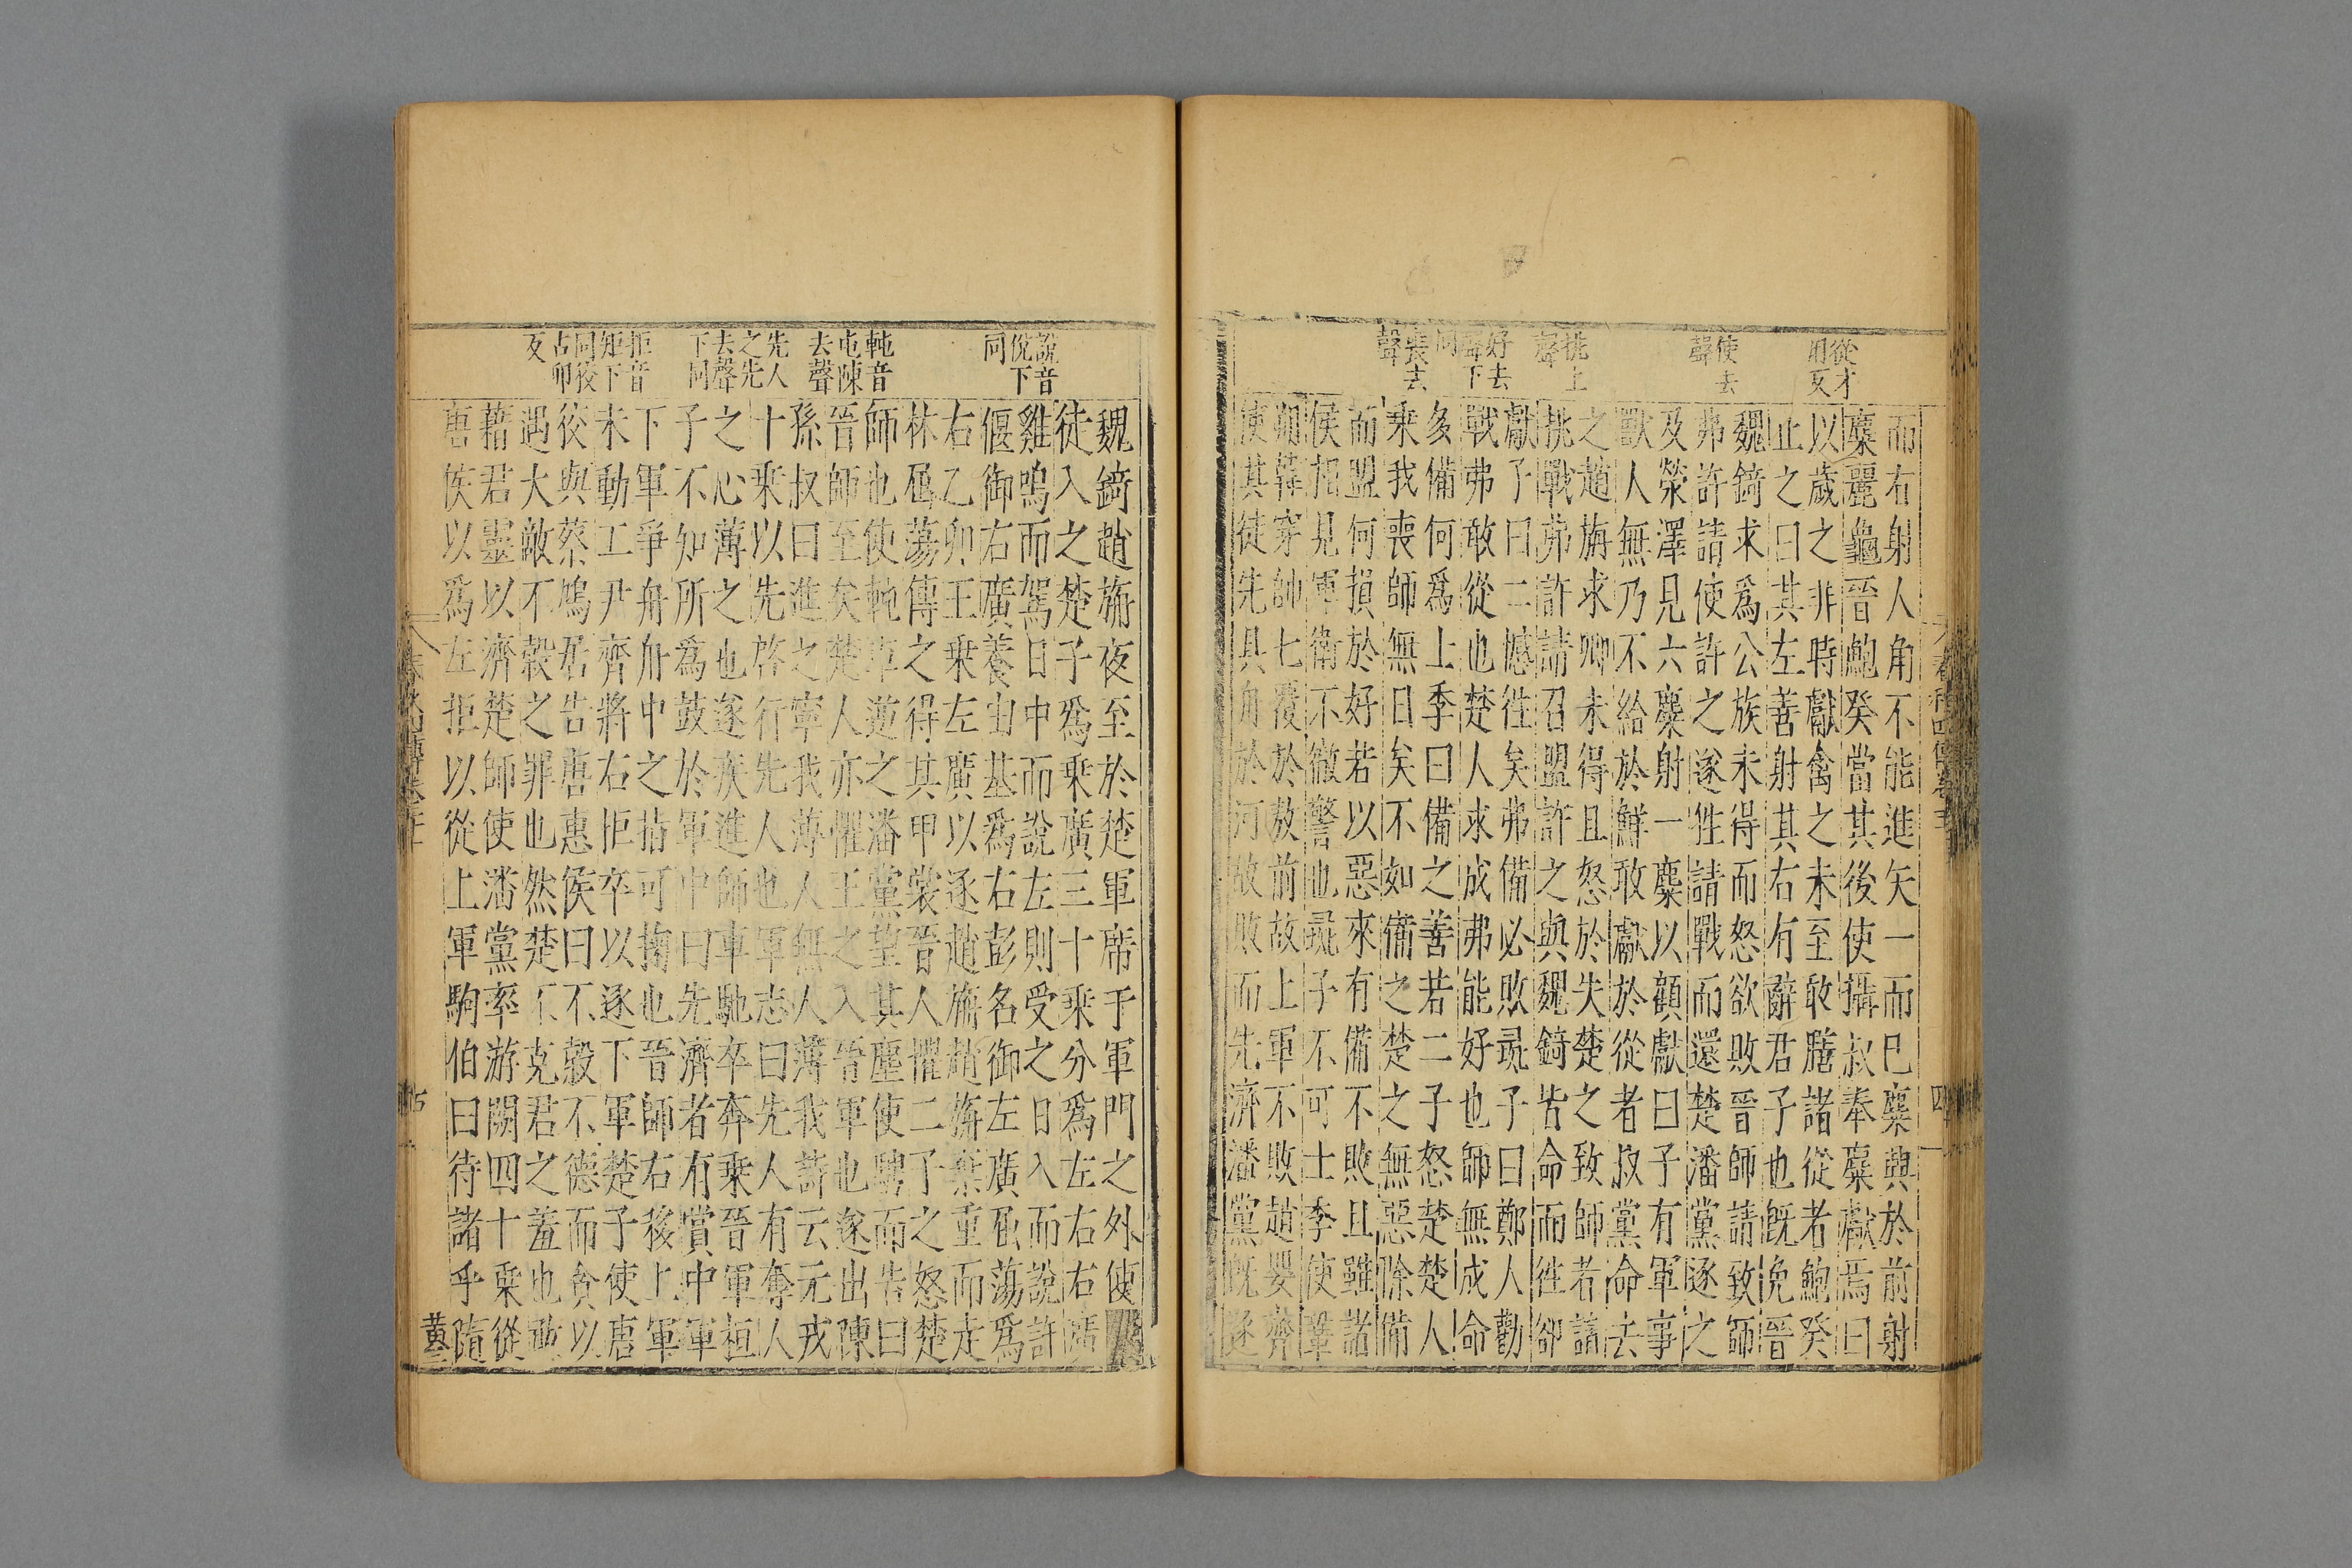 從才
用反
使去
聲
挑上
聲
好去
聲下
同
喪去
聲
而右射人角不能進矢一而巳麋興於前射
麋麗龜晉鮑癸當其後使攝叔奉麋獻焉曰
以歲之非時獻禽之未至敢膳諸從者鮑癸
止之曰其左善射其右有辭君子也既免晉
魏錡求爲公族未得而怒欲敗晉師請致師
弗許請使許之遂徃請戰而還楚潘黨逐之
及熒澤見六麋射一麋以顧獻曰子有軍事
獸人無乃不給於鮮敢獻於從者叔黨命去
之趙旃求卿未得且怒於失楚之致師者請
挑戰弗許請召盟許之與魏錡皆命而徃郤
獻子曰二憾徃矣弗備必敗彘子曰鄭人勸
戰弗敢從也楚人求成弗能好也師無成命
多備何爲士季曰備之善若二子怒楚楚人
乘我喪師無日矣不如備之楚之無惡除備
而盟何損於好若以惡來有備不敗且雖諸
侯相見軍衛不徹警也彘子不可士季使鞏
朔韓穿帥七覆於敖前故上軍不敗趙嬰齊
使其徒先具舟於河故敗而先濟潘黨既逐
四
說音
倪下
同
軘音
屯陳
去聲
先人
之先
去聲
下同
拒音
矩下
同狡
古卯
反
魏錡趙旃夜至於楚軍席于軍門之外使
徒入之楚子爲乘廣三十乘分爲左右右廣
雞鳴而駕日中而說左則受之日入而說許
偃御右廣養由基爲右彭名御左廣屈蕩爲
右乙卯王乘左廣以逐趙旃趙旃棄車而走
林屈蕩傳之得其甲裳晉人懼二子之怒楚
師也使軘車逆之潘黨望其塵使騁而告曰
晉師至矣楚人亦懼王之入晉軍也遂出陳
孫叔曰進之寧我薄人無人薄我詩云元戎
十乘以先啓行先人也軍志曰先人有奪人
之心薄之也遂疾進師車馳卒奔乘晉軍桓
子不知所爲鼓於軍中曰先濟者有賞中軍
下軍爭舟舟中之指可掬也晉師右移上軍
未動工尹齊將右拒卒以逐下軍楚子使唐
狡與蔡鳩居告唐惠侯曰不穀不德而貪以
遇大敵不穀之罪也然楚不克君之羞也敢
藉君靈以濟楚師使潘黨率游闕四十乘從
唐侯以爲左拒以從上軍駒伯曰待諸乎隨